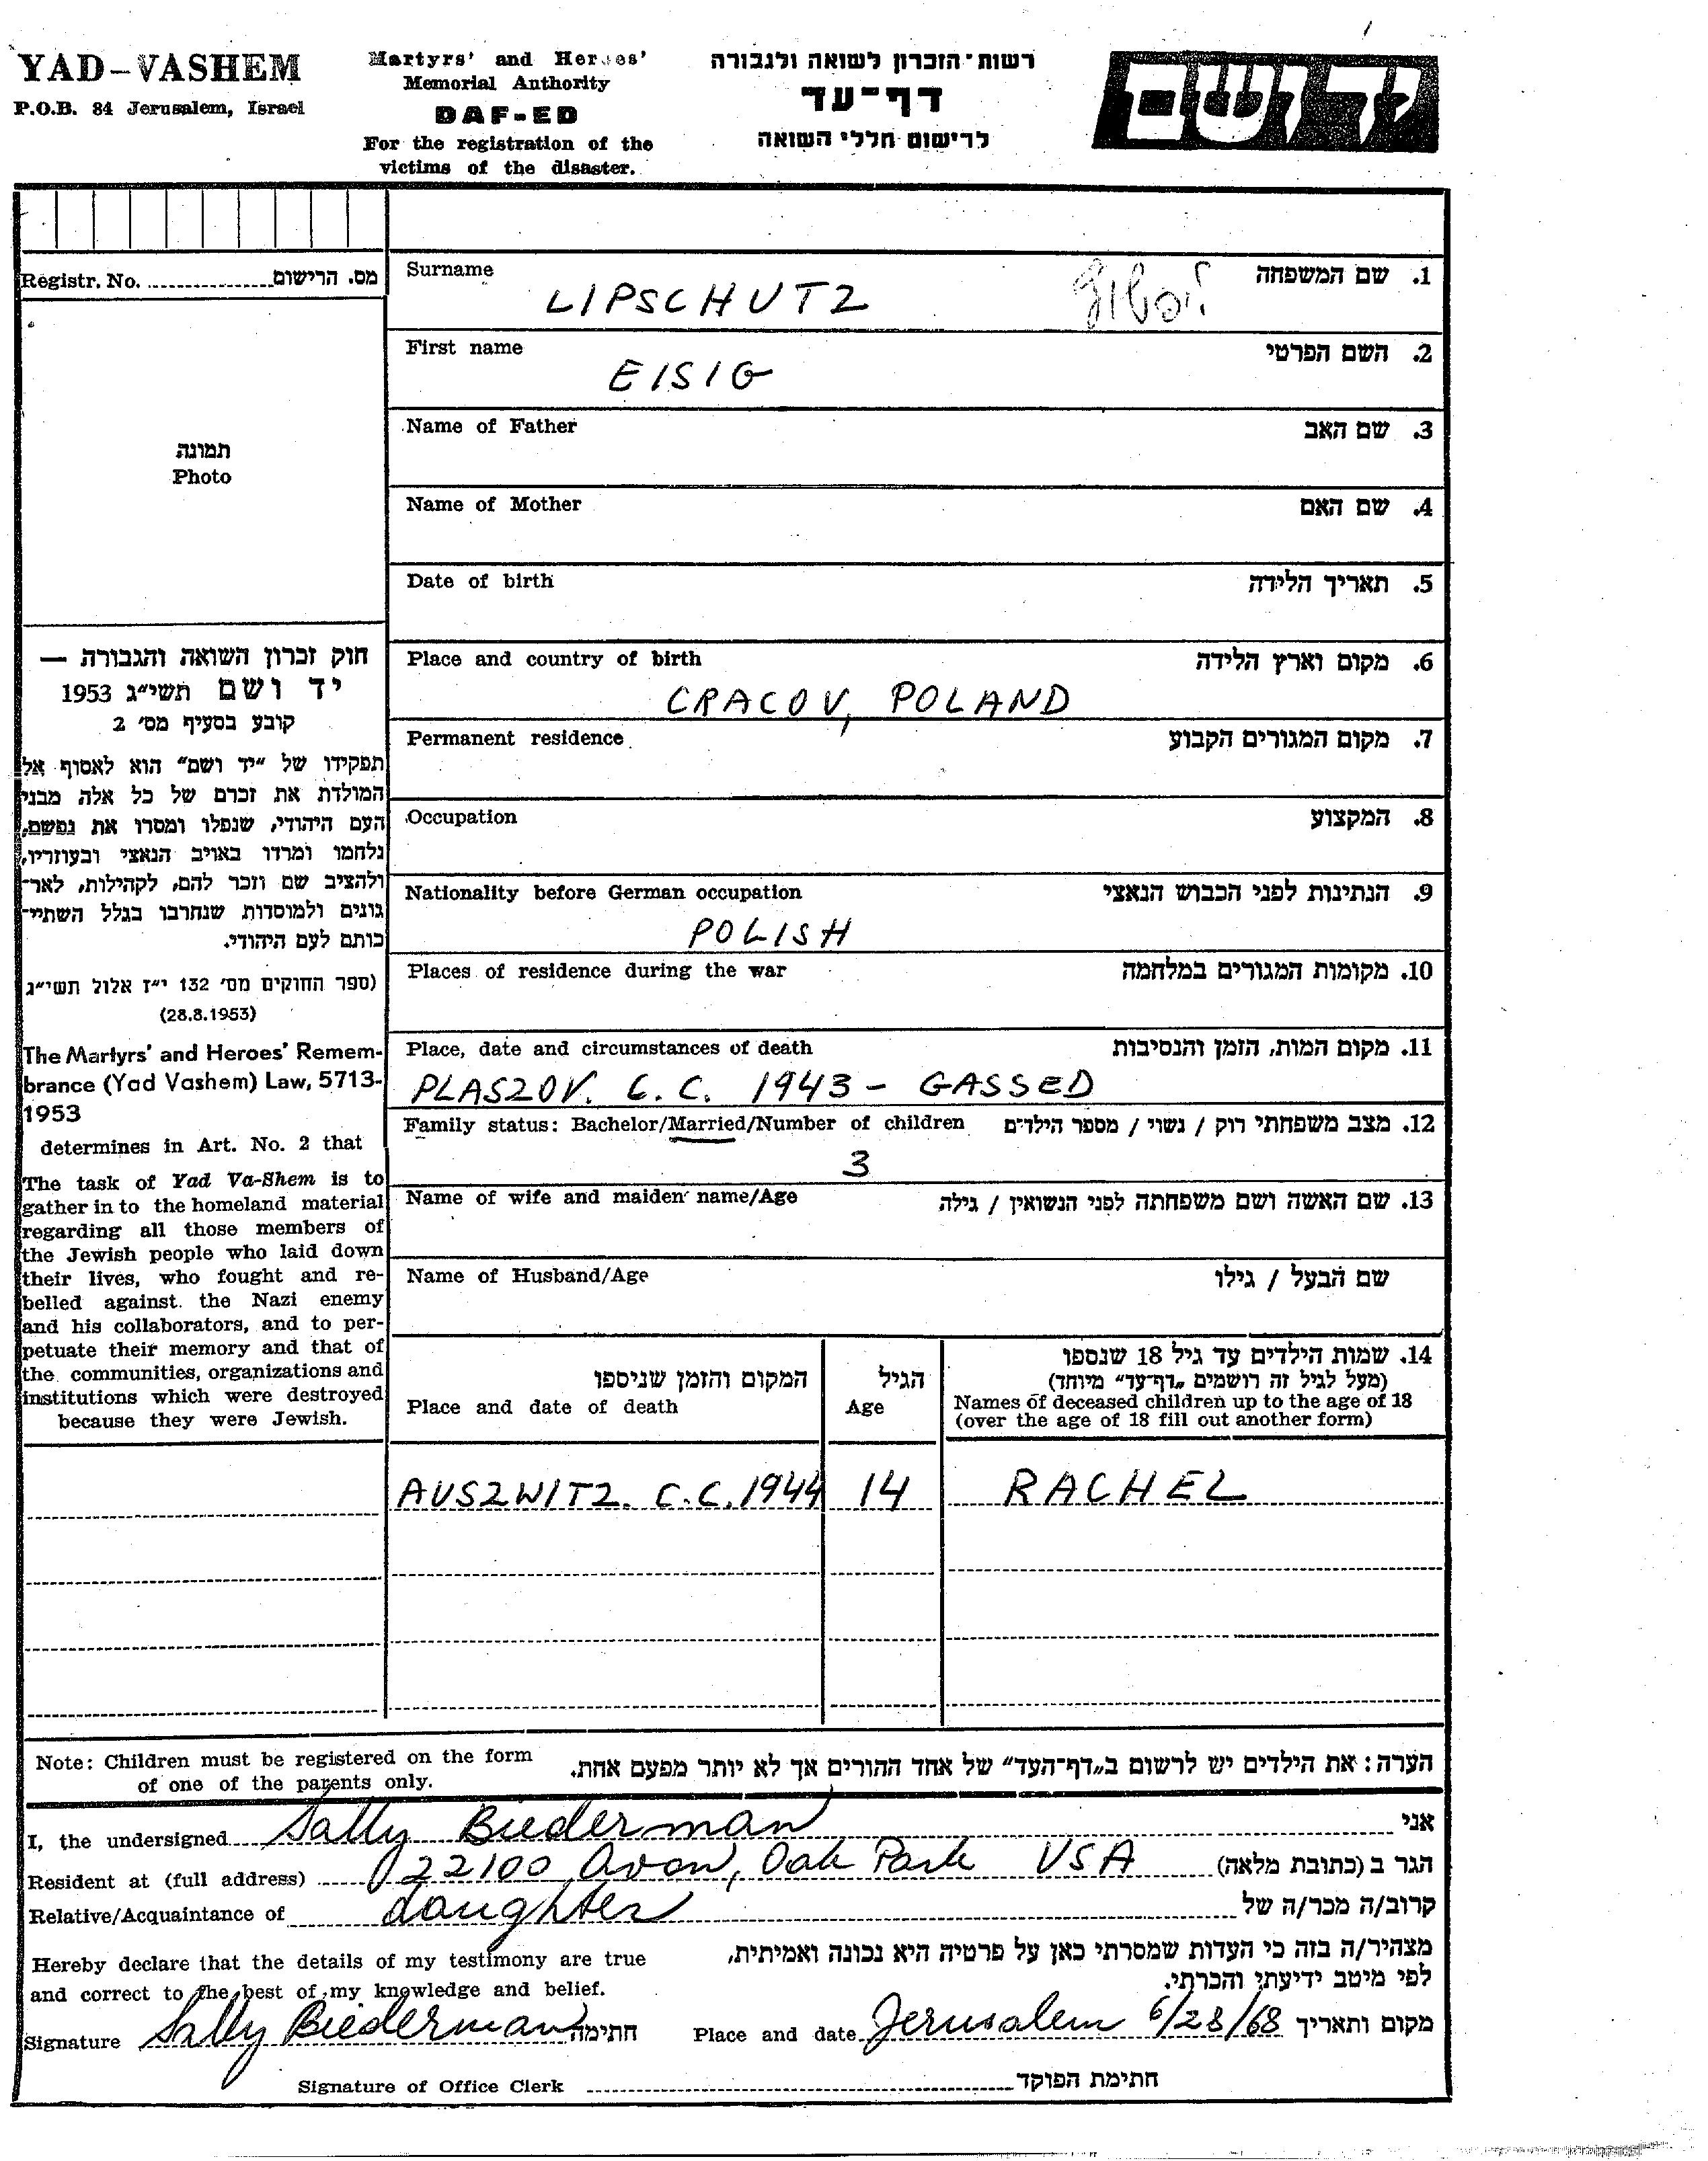 YAD-VASHEM
P.O.B. 84 Jerusalem, Israel
Martyrs' and Heroes'
Memorial Authority
DAF-ED
For the registration of the
victims of the disaster.
רשות־הזכרון לשואה ולגבורה
דף־עד
לרישום חללי השואה
יד ושם
Registr. No. מס. הרישום
תמונה
Photo
חוק זכרון השואה והגבורה —
יד ושם תשי״ג 1953
קובע בסעיף מס׳ 2
תפקידו של ״יד ושם״ הוא לאסוף אל
המולדת את זכרם של כל אלה מבני
העם היהודי, שנפלו ומסרו את נפשם,
נלחמו ומרדו באויב הנאצי ובעוזריו,
ולהציב שם וזכר להם, לקהילות, לאר־
גונים ולמוסדות שנחרבו בגלל השתיי־
כותם לעם היהודי.
(ספר החוקים מס׳ 132 י״ז אלול תשי״ג
(28.8.1953)
The Martyrs' and Heroes' Remem-
brance (Yad Vashem) Law, 5713-
1953
determines in Art. No. 2 that
The task of Yad Va-Shem is to
gather in to the homeland material
regarding all those members of
the Jewish people who laid down
their lives, who fought and re-
belled against the Nazi enemy
and his collaborators, and to per-
petuate their memory and that of
the communities, organizations and
institutions which were destroyed
because they were Jewish.
Surname 1. שם המשפחה
LIPSCHUTZ
First name 2. השם הפרטי
EISIG
Name of Father 3. שם האב
Name of Mother 4. שם האם
Date of birth 5. תאריך הלידה
Place and country of birth 6. מקום וארץ הלידה
CRACOV, POLAND
Permanent residence 7. מקום המגורים הקבוע
Occupation 8. המקצוע
Nationality before German occupation 9. הנתינות לפני הכבוש הנאצי
POLISH
Places of residence during the war 10. מקומות המגורים במלחמה
Place, date and circumstances of death 11. מקום המות, הזמן והנסיבות
PLASZOV. C.C. 1943 - GASSED
Family status: Bachelor/Married/Number of children 12. מצב משפחתי רוק / נשוי / מספר הילדים
3
Name of wife and maiden name/Age 13. שם האשה ושם משפחתה לפני הנשואין / גילה
Name of Husband/Age שם הבעל / גילו
המקום והזמן שניספו
Place and date of death
הגיל
Age
14. שמות הילדים עד גיל 18 שנספו
(מעל לגיל זה רושמים „דף־עד״ מיוחד)
Names of deceased children up to the age of 18
(over the age of 18 fill out another form)
AUSZWITZ. C.C. 1944 14 RACHEL
Note: Children must be registered on the form
of one of the parents only.
הערה: את הילדים יש לרשום ב„דף־העד״ של אחד ההורים אך לא יותר מפעם אחת.
I, the undersigned Sally Biederman אני
Resident at (full address) 22100 Avon, Oak Park USA הגר ב (כתובת מלאה)
Relative/Acquaintance of daughter קרוב/ה מכר/ה של
Hereby declare that the details of my testimony are true
and correct to the best of my knowledge and belief.
מצהיר/ה בזה כי העדות שמסרתי כאן על פרטיה היא נכונה ואמיתית,
לפי מיטב ידיעתי והכרתי.
Signature Sally Biederman חתימה Place and date Jerusalem 6/28/68 מקום ותאריך
Signature of Office Clerk חתימת הפוקד